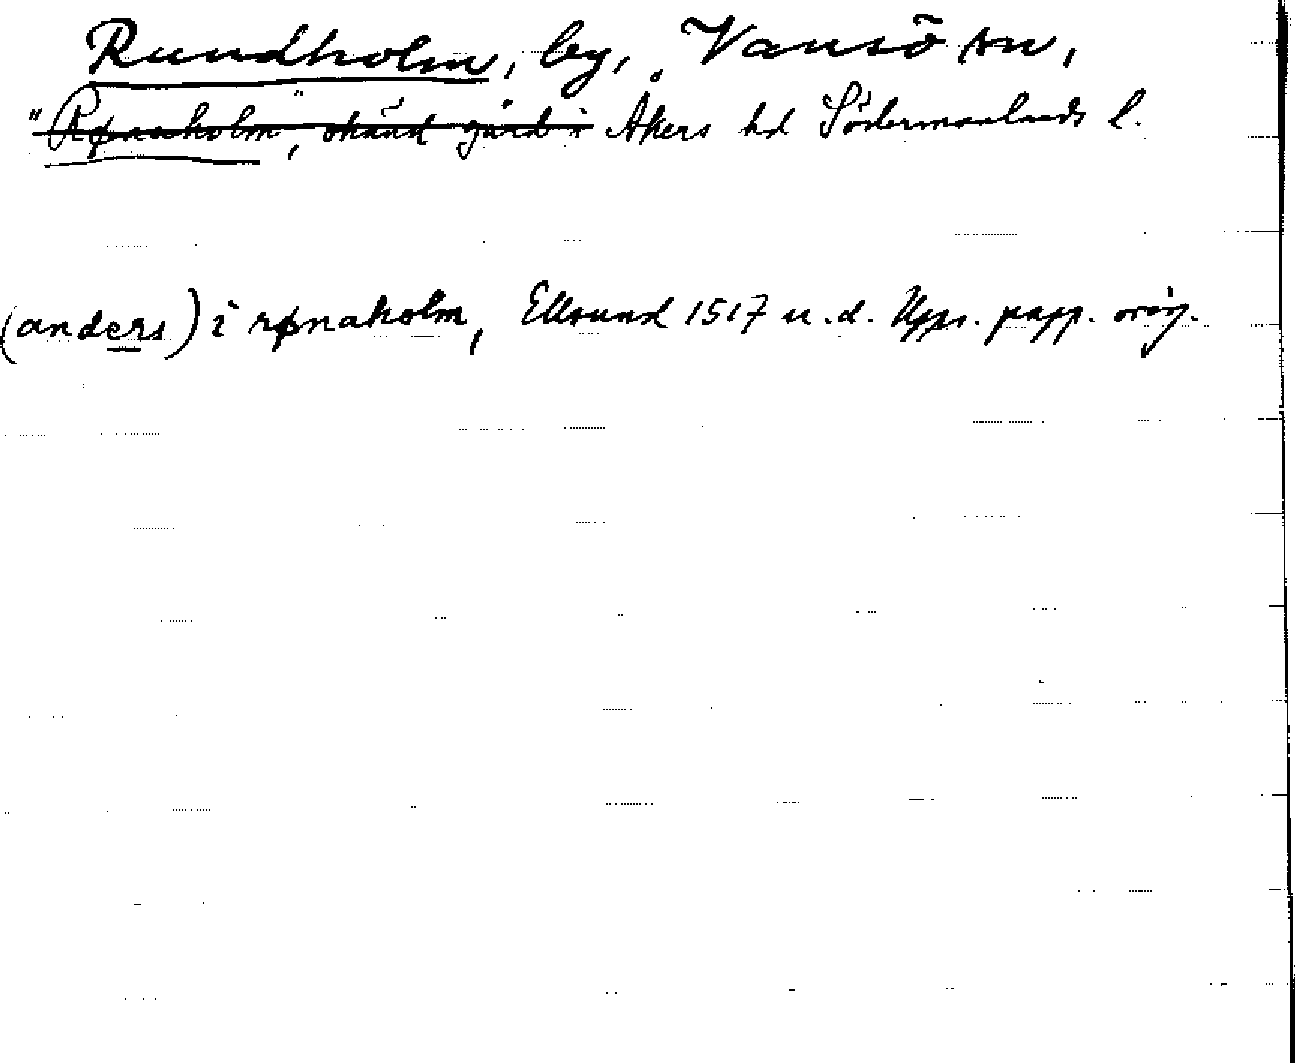 Rundholm, by, Vansö sn,
"Rønaholm", okänd gård i Åkers hd Södermanlands l.
(anders) i rønaholm, Ellsund 1517 u.d. Upps. papp. orig.